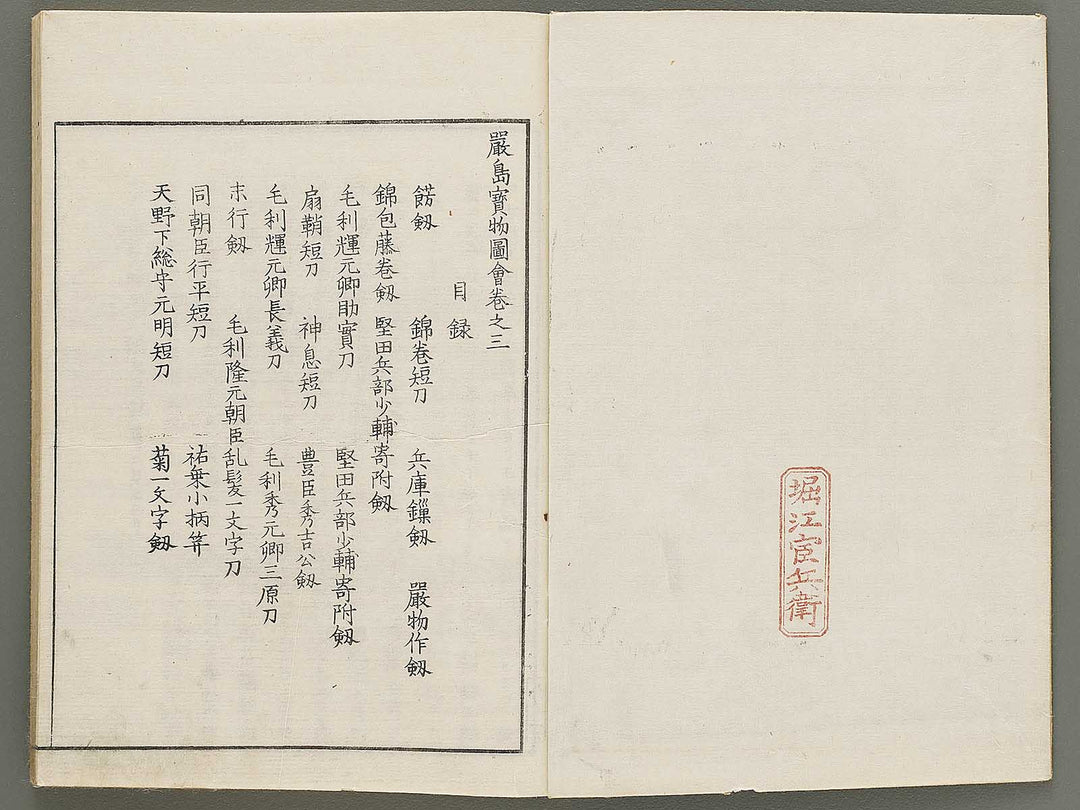 堀江宦兵衛
嚴島寶物圖會卷之三
目録
餝劔 錦卷短刀 兵庫鏁劔 嚴物作劔
錦包藤卷劔 堅田兵部少輔寄附劔
毛利輝元卿助實刀 堅田兵部少輔寄附劔
扇鞘短刀 神息短刀 豊臣秀吉公劔
毛利輝元卿長義刀 毛利秀元卿三原刀
末行劔 毛利隆元朝臣乱髪一文字刀
同朝臣行平短刀 祐乗小柄笄
天野下総守元明短刀 菊一文字劔